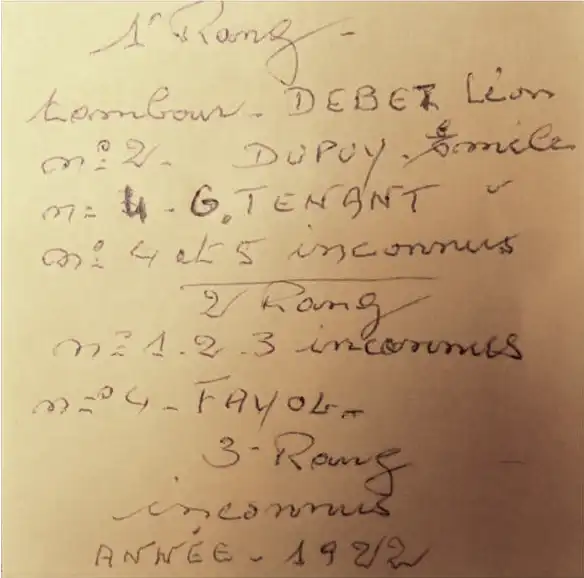 1r Rang -
tambour - DEBET Léon
n° 2 - DUPUY - Emile
n= 4 - G. TENANT
n° 4 et 5 inconnus
2 Rang
n° 1.2.3 inconnus
n=° 4 - FAYOL -
3 - Rang
inconnus
ANNÉE - 1922